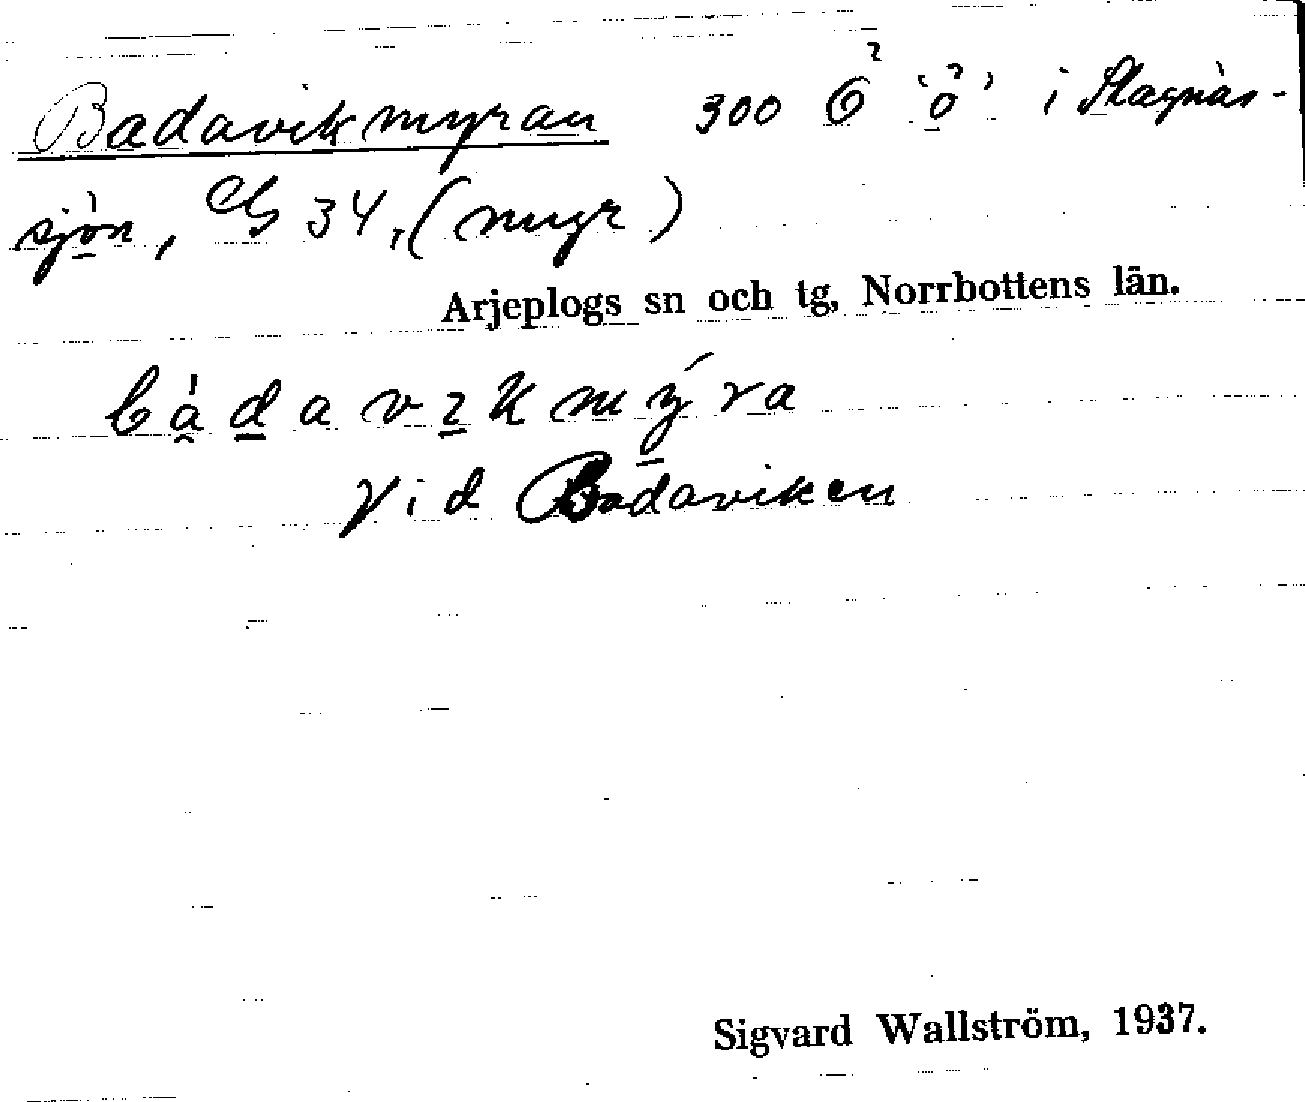 Badavikmyran 300 Ö 'ö' i Stagnäs-
sjön, 34, (myr)
Arjeplogs sn och tg, Norrbottens län.
vid Badaviken
Sigvard Wallström, 1937.